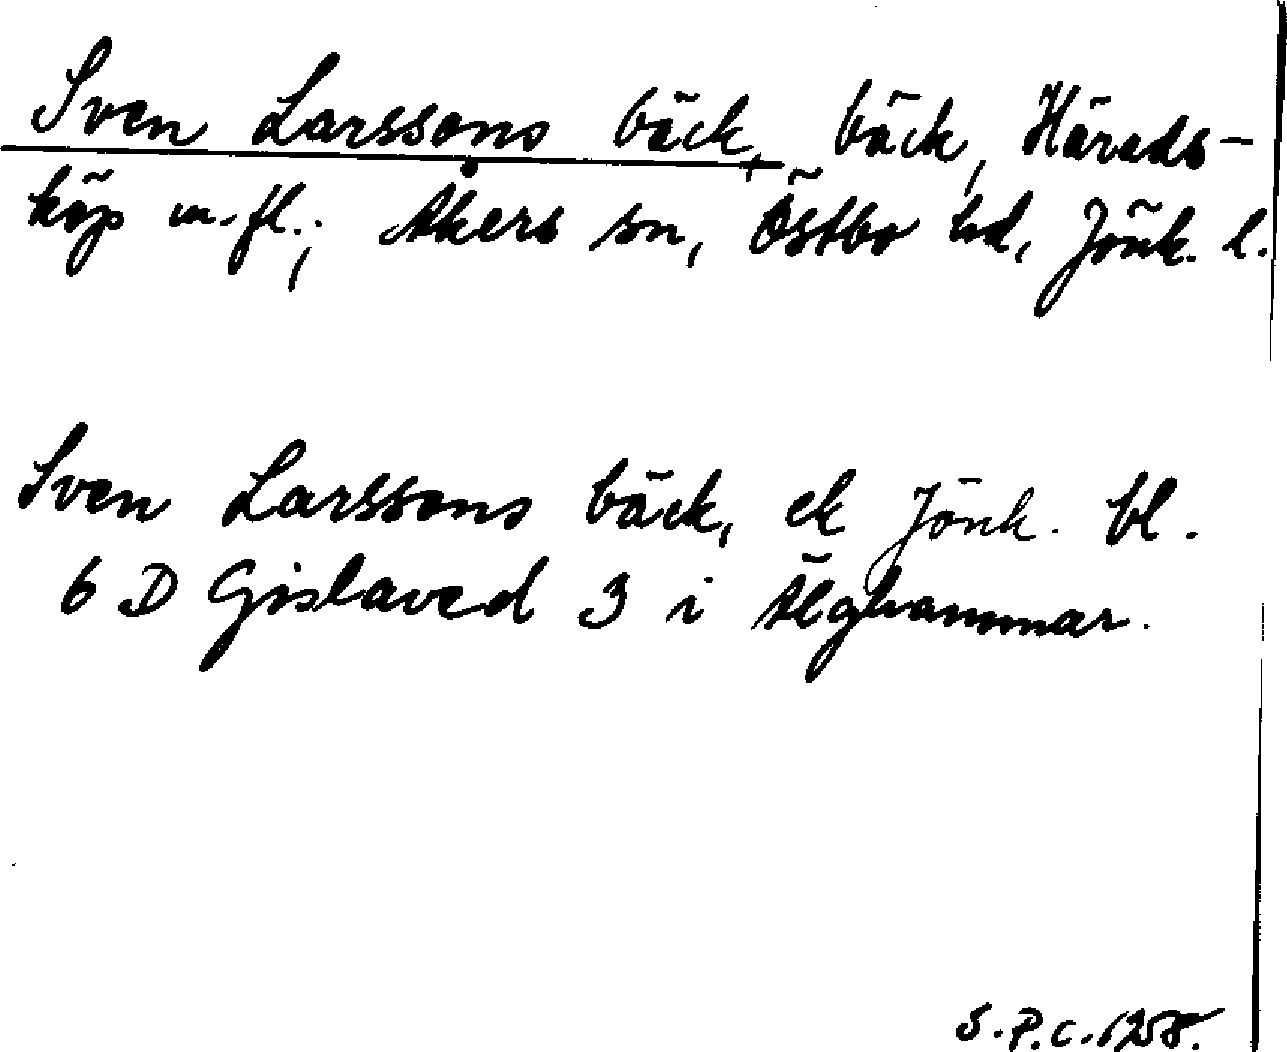 Sven Larssons bäck, bäck, Härads-
köp m.fl.; Åkers sn, Östbo hd, Jönk. l.
Sven Larssons bäck, ek Jönk. bl.
6 D Gislaved 3 i Älghammar.
S.P.C. 1258.